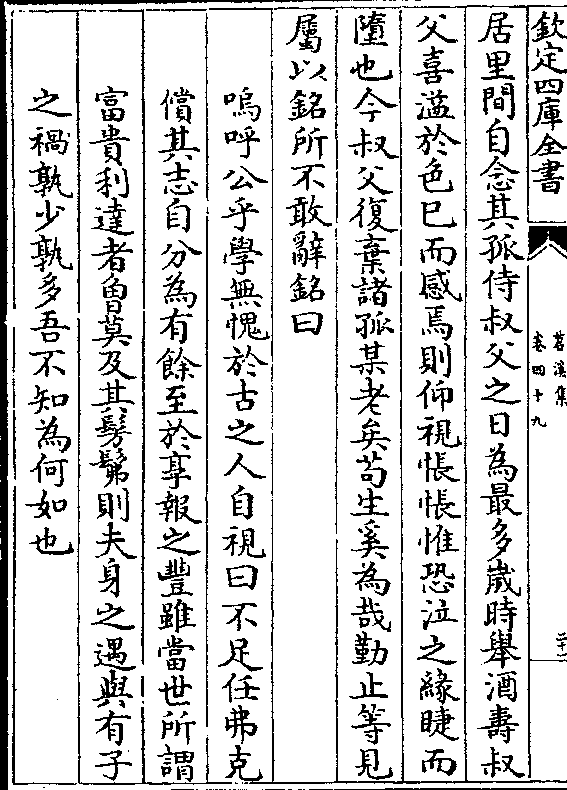 欽定四庫全書
苕溪集
卷四十九
二十二
居里間自念其孤侍叔父之日為最多歲時舉酒壽叔
父喜溢於色已而感焉則仰視悵悵惟恐泣之緣睫而
墮也今叔父復棄諸孤某老矣苟生奚為哉勤止等見
屬以銘所不敢辭銘曰
嗚呼公乎學無愧於古之人自視曰不足任弗克
償其志自分為有餘至於享報之豐雖當世所謂
富貴利達者曾莫及其髣髴則夫身之遇與有子
之禍孰少孰多吾不知為何如也